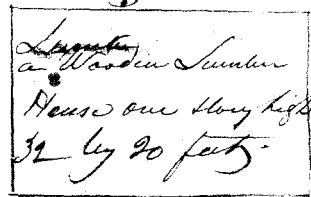 Lumber
a Wooden Lumber
House one story high
32 by 20 feet.